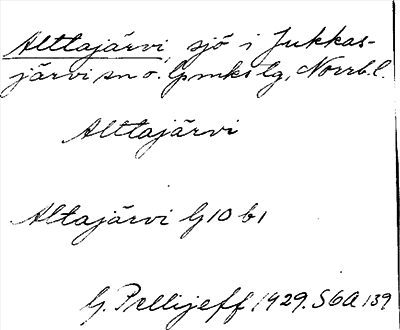 Alttajärvi, sjö i Jukkas-
järvi sn o. lpmks lg, Norrb. l.
Alttajärvi
Altajärvi G10 b1
G. Pellijeff 1929. S6A 139